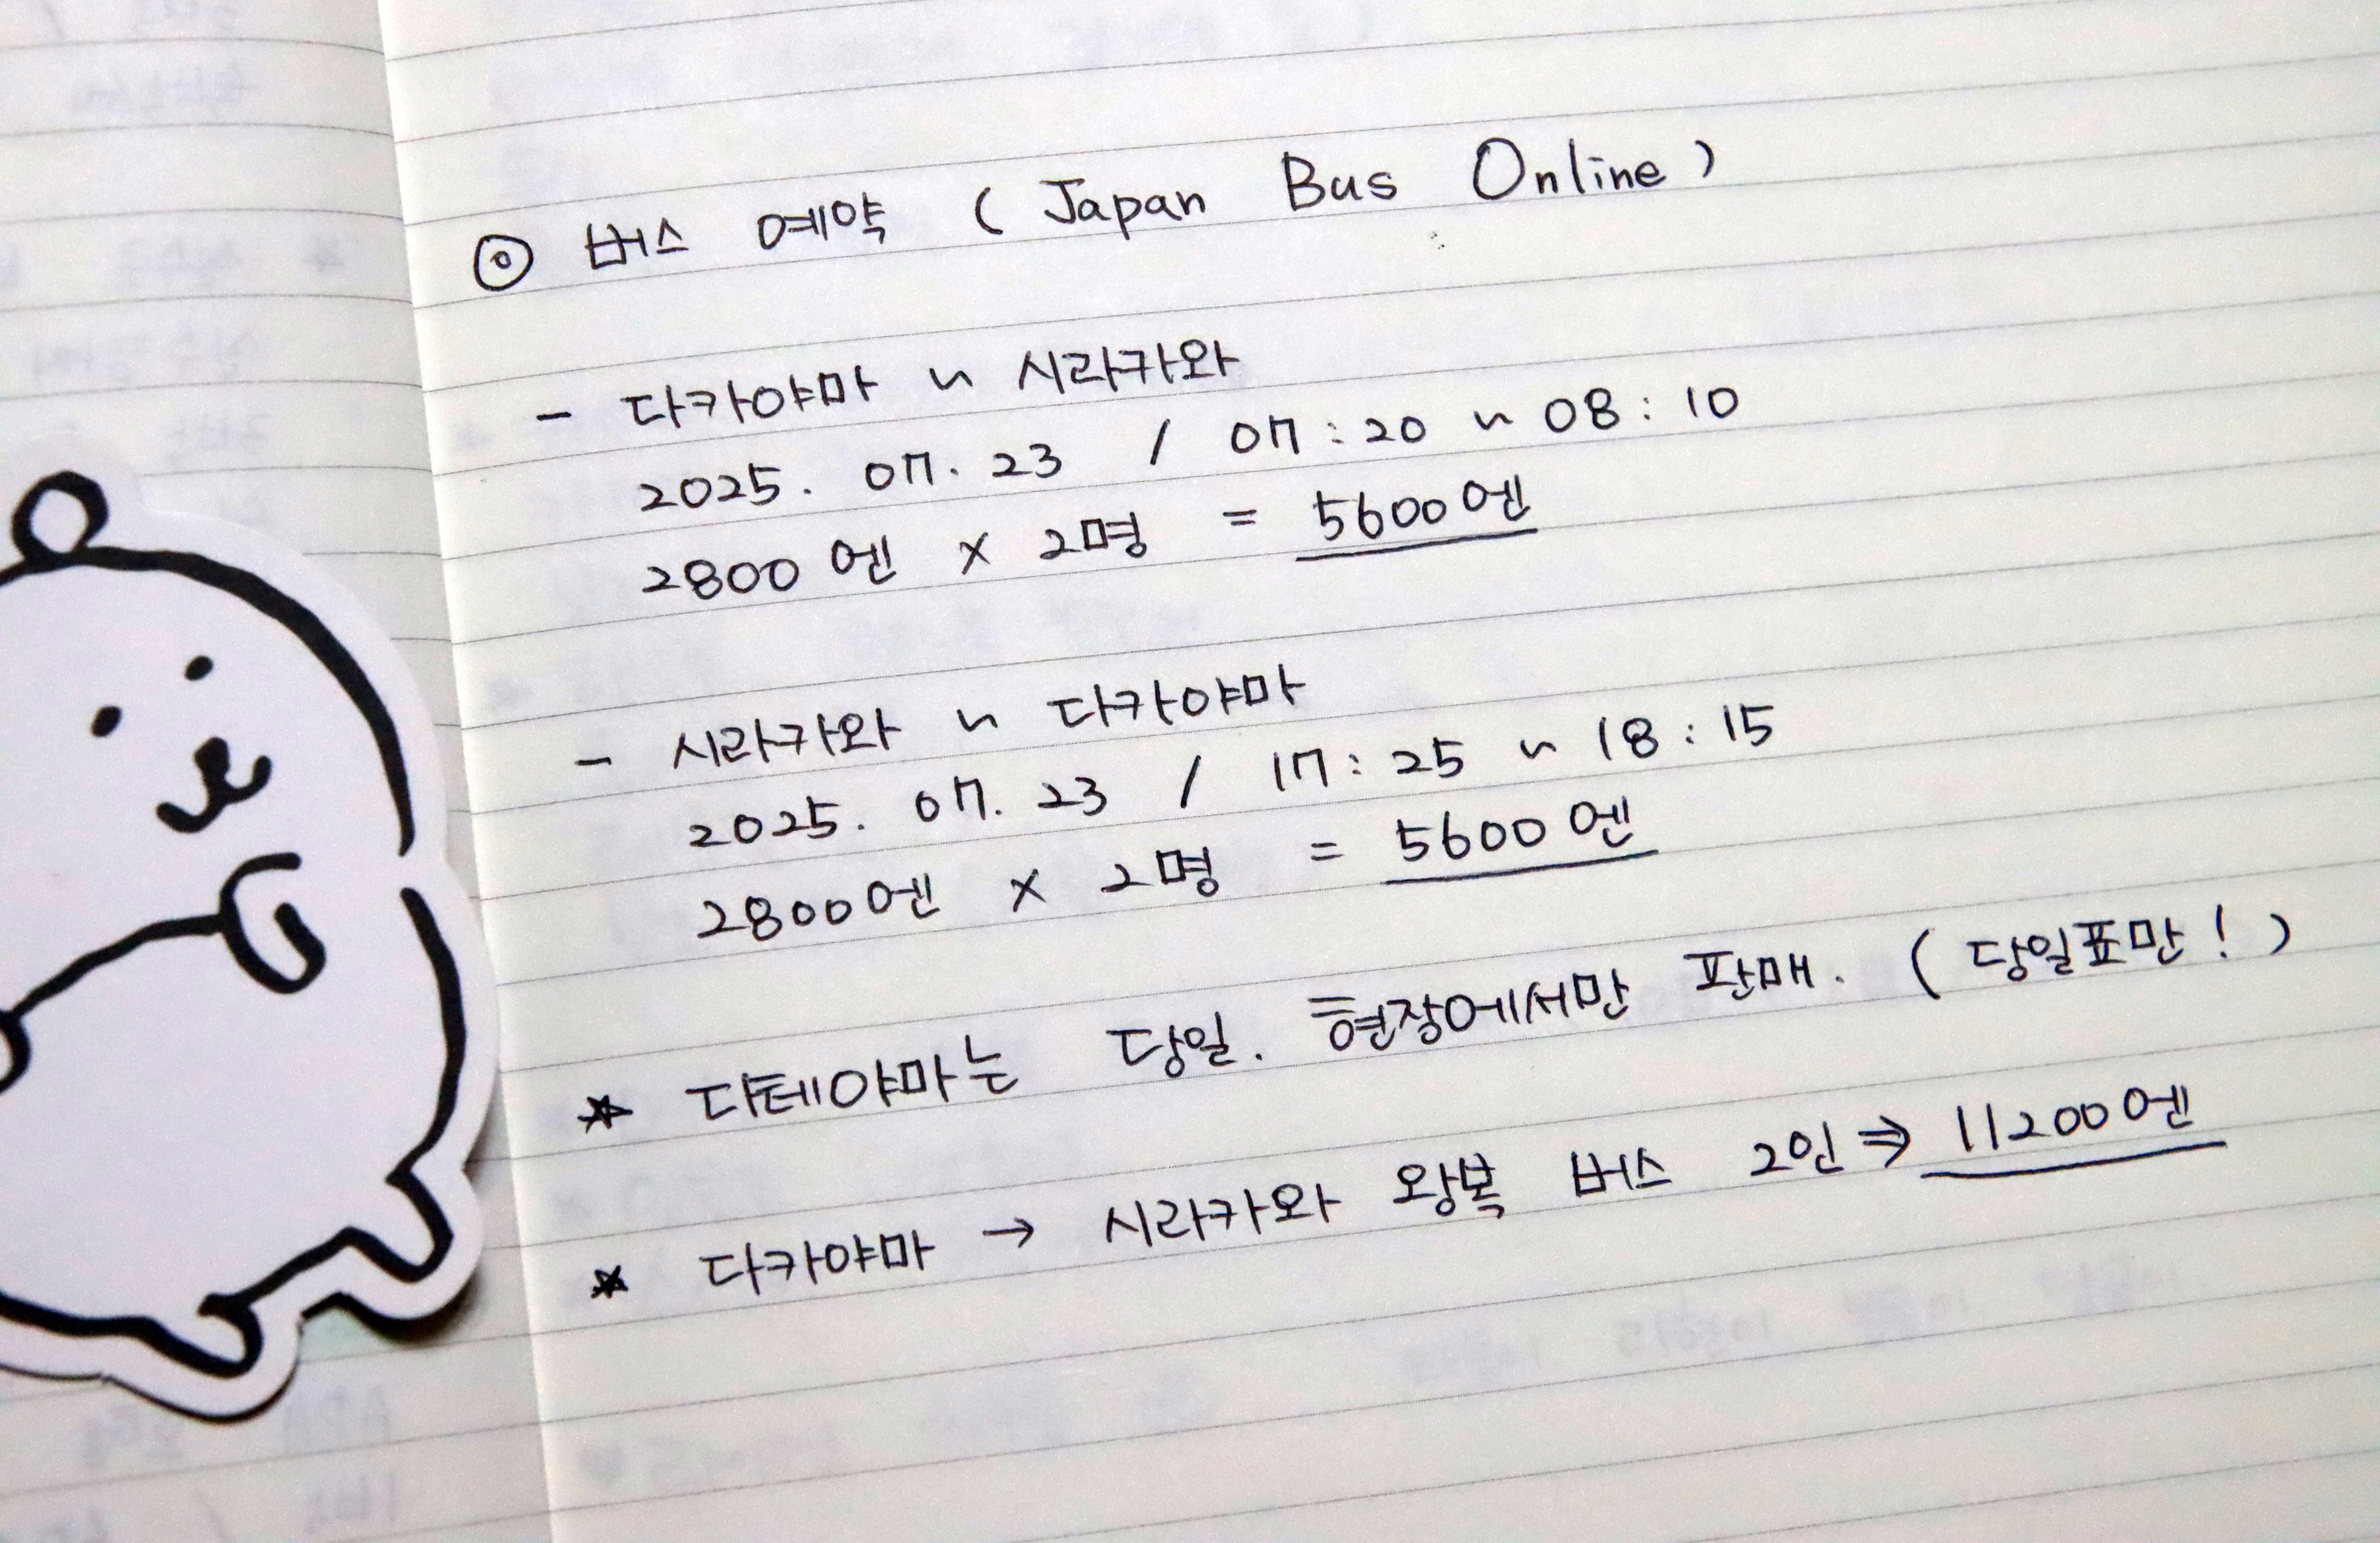 ⊙ 버스 예약 ( Japan Bus Online )
- 다카야마 ~ 시라카와
2025. 07. 23 / 07 : 20 ~ 08 : 10
2800 엔 × 2명 = 5600엔
- 시라카와 ~ 다카야마
2025. 07. 23 / 17 : 25 ~ 18 : 15
2800엔 × 2명 = 5600엔
★ 다테야마는 당일. 현장에서만 판매. ( 당일표만! )
★ 다카야마 → 시라카와 왕복 버스 2인 ⇒ 11200엔